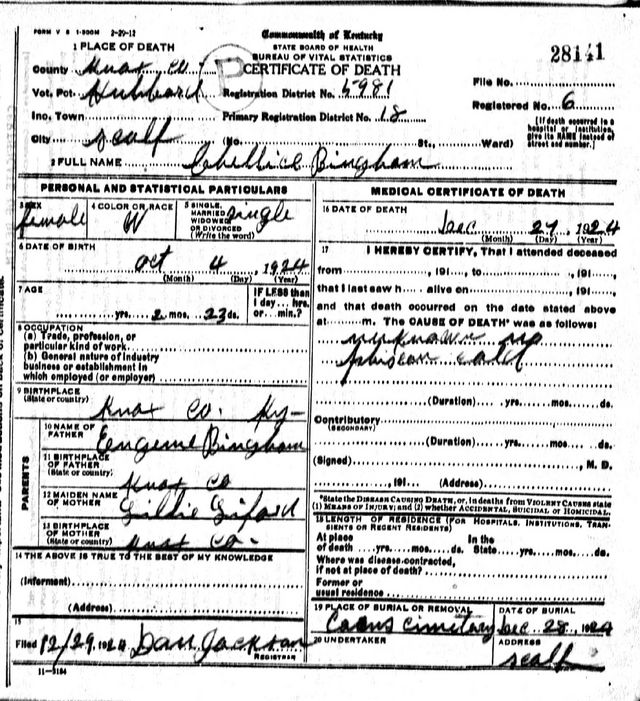 FORM V S 1-300M 2-20-12
Commonwealth of Kentucky
STATE BOARD OF HEALTH
BUREAU OF VITAL STATISTICS
CERTIFICATE OF DEATH
28141
1 PLACE OF DEATH
County Knox Co
Vot. Pct. Hubbard
Registration District No. 5981
File No.
Inc. Town
Primary Registration District No. 18
Registered No. 6
City Scalf
(No. St., Ward)
(If death occurred in a hospital or institution, give its NAME instead of street and number.)
2 FULL NAME Chellice Bingham
PERSONAL AND STATISTICAL PARTICULARS
3 SEX female
4 COLOR OR RACE W
5 SINGLE, MARRIED, WIDOWED OR DIVORCED (Write the word) single
6 DATE OF BIRTH
Oct 4, 1924
(Month) (Day) (Year)
7 AGE
yrs. 2 mos. 23 ds.
IF LESS than 1 day... hrs. or... min.?
8 OCCUPATION
(a) Trade, profession, or particular kind of work
(b) General nature of industry business or establishment in which employed (or employer)
9 BIRTHPLACE
(State or country)
Knox Co. Ky-
PARENTS
10 NAME OF FATHER Eengene Bingham
11 BIRTHPLACE OF FATHER (State or country) Knox Co
12 MAIDEN NAME OF MOTHER Lillie
13 BIRTHPLACE OF MOTHER (State or country) Knox Co-
14 THE ABOVE IS TRUE TO THE BEST OF MY KNOWLEDGE
(Informent)
(Address)
15
Filed 12/29, 1924 Dan Jackson
REGISTRAR
11-3184
MEDICAL CERTIFICATE OF DEATH
16 DATE OF DEATH
Dec 27, 1924
(Month) (Day) (Year)
17 I HEREBY CERTIFY, That I attended deceased
from , 191 , to , 191 ,
that I last saw h alive on , 191 ,
and that death occurred on the date stated above
at m. The CAUSE OF DEATH* was as follows:
unknown no
phisean call
(Duration) yrs. mos. ds.
Contributory
(SECONDARY)
(Duration) yrs. mos. ds.
(Signed) , M. D.
, 191 (Address)
*State the DISEASE CAUSING DEATH, or, in deaths from VIOLENT CAUSES state (1) MEANS OF INJURY; and (2) whether ACCIDENTAL, SUICIDAL or HOMICIDAL.
18 LENGTH OF RESIDENCE (FOR HOSPITALS, INSTITUTIONS, TRANSIENTS OR RECENT RESIDENTS)
At place of death yrs. mos. ds. In the State yrs. mos. ds.
Where was disease contracted, if not at place of death?
Former or usual residence
19 PLACE OF BURIAL OR REMOVAL
cimitary
DATE OF BURIAL
Dec 28, 1924
20 UNDERTAKER
ADDRESS
Scalf